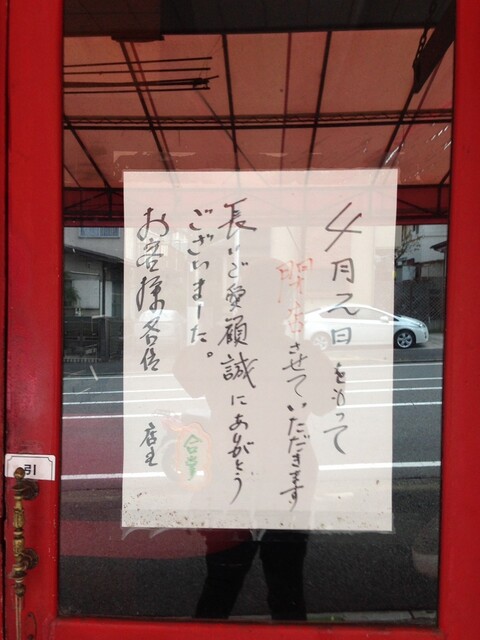 4月元日をもって
閉店させていただきます
長いご愛顧誠にありがとう
ございました。
お客様各位
店主
引